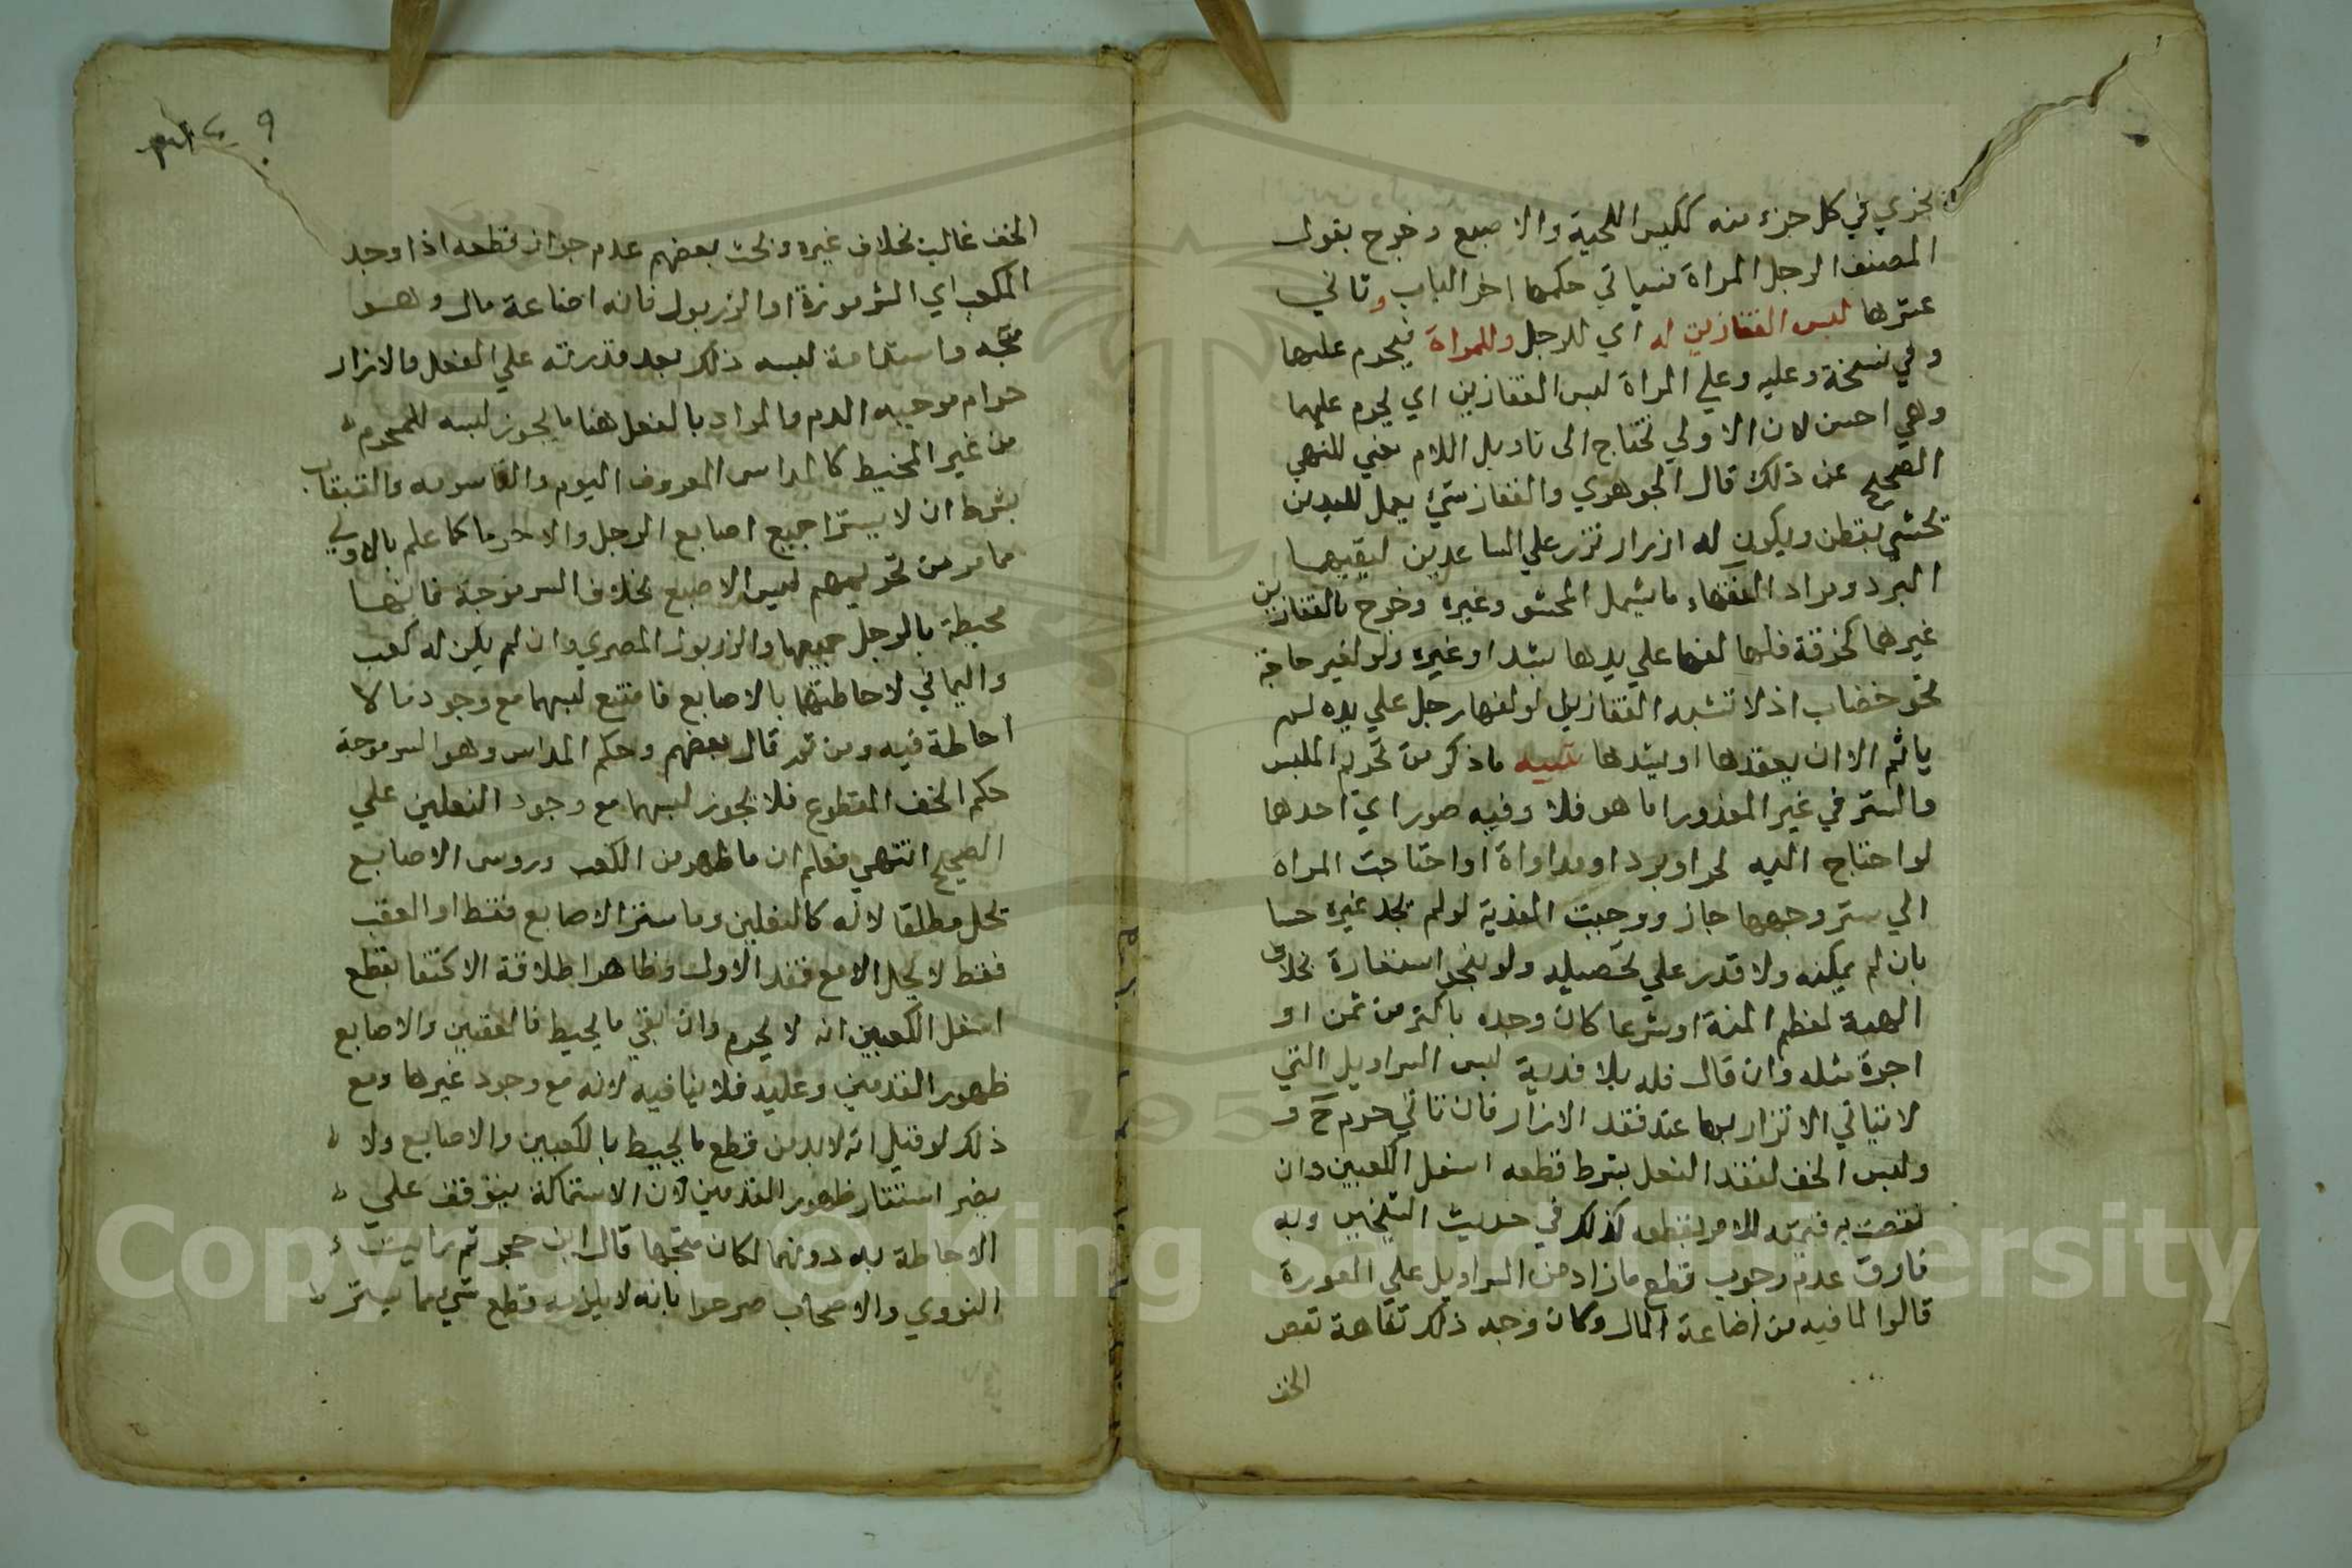 يجري في كل جزء منه ككيس اللحية والاصبع وخرج بقول
المصنف الرجل المراة فسياتي حكمها اخر الباب وثاني
عشرها لبس القفازين له اي للرجل وللمراة فيحرم عليها
وفي نسخة وعليه وعلي المراة لبس القفازين اي يحرم عليهما
وهي احسن لان الاولي تحتاج الى تاويل اللام بمعني للنهي
الصحيح عن ذلك قال الجوهري والقفاز شيء يعمل لليدين
تحشي بقطن ويكون له ازرار تزر علي الساعدين ليقيهما
البرد ومراد الفقهاء ما يشمل المحشو وغيره وخرج بالقفازين
غيرهما كخرقة فلها لفها علي يدها بشد او غيره ولو لغير حاجة
نحو خضاب اذ لا تشبه القفازين لو لفها رجل علي يده لم
ياثم الا ان يعقدها او يشدها تنبيه ما ذكر من تحريم الملبس
والستر في غير المعذور اما هو فلا وفيه صور اي احدها
لو احتاج اليه لحر او برد او مداواة او احتاجت المراة
الي ستر وجهها جاز ووجبت الفدية لو لم تجد غيره حسا
بان لم يمكنه ولا قدر علي تحصيله ولو بنحو استعارة بخلاف
الهبة لعظم المنة او شرعا كان وجده باكثر من ثمن او
اجرة مثله وان قال فله بلا فدية لبس السراويل التي
لا يتاتي الاتزار بها عند فقد الازار فان تاتي حرم ح و
ولبس الخف لفقد النعل بشرط قطعه اسفل الكعبين وان
نقصت به قيمته للامر بقطعه كذلك في حديث الشيخين وبه
فارق عدم وجوب قطع ما زاد من السراويل علي العورة
قالوا لما فيه من اضاعة المال وكان وجه ذلك تفاهة نقص
الخف
٩
الخف غالبا بخلاف غيره وبحث بعضهم عدم جواز قطعه اذا وجد
المكعب اي الشرموزة او الزربول فانه اضاعة مال وهو
متجه واستدامة لبسه ذلك بعد قدرته علي النعل والازار
حرام موجبه الدم والمراد بالنعل هنا ما يجوز لبسه للمحرم
من غير المخيط كالمداس المعروف اليوم والقاسومه والقبقاب
بشرط ان لا يسترا جميع اصابع الرجل والا حرما كما علم بالاولي
مما مر من تحريمهم لبس الاصبع بخلاف السرموجة فانها
محيطة بالرجل جميعها والزربول المصري وان لم يكن له كعب
واليماني لاحاطتها بالاصابع فامتنع لبسهما مع وجود ما لا
احاطة فيه ومن ثم قال بعضهم وحكم المداس وهو السرموجة
حكم الخف المقطوع فلا يجوز لبسهما مع وجود النعلين علي
الصحيح انتهي فعلم ان ما ظهر من الكعب وروس الاصابع
تحل مطلقا لانه كالنعلين وما ستر الاصابع فقط او العقب
فقط لا يحل الا مع فقد الاول وظاهر اطلاقه الاكتفا بقطع
اسفل الكعبين انه لا يحرم وان بقي ما يحيط فالعقبين والاصابع
ظهور القدمين وعليه فلا ينافيه لانه مع وجود غيرها ومع
ذلك لو قيل انه لا بد من قطع ما يحيط بالكعبين والاصابع ولا
يضر استتار ظهور القدمين لان الاستمساكة يتوقف علي
الاحاطة به دونهما لكان متجها قال ابن حجر ثم رايت
النووي والاصحاب صرحوا بانه لا يلزمه قطع شيء مما يستر
Copyright © King Saud University